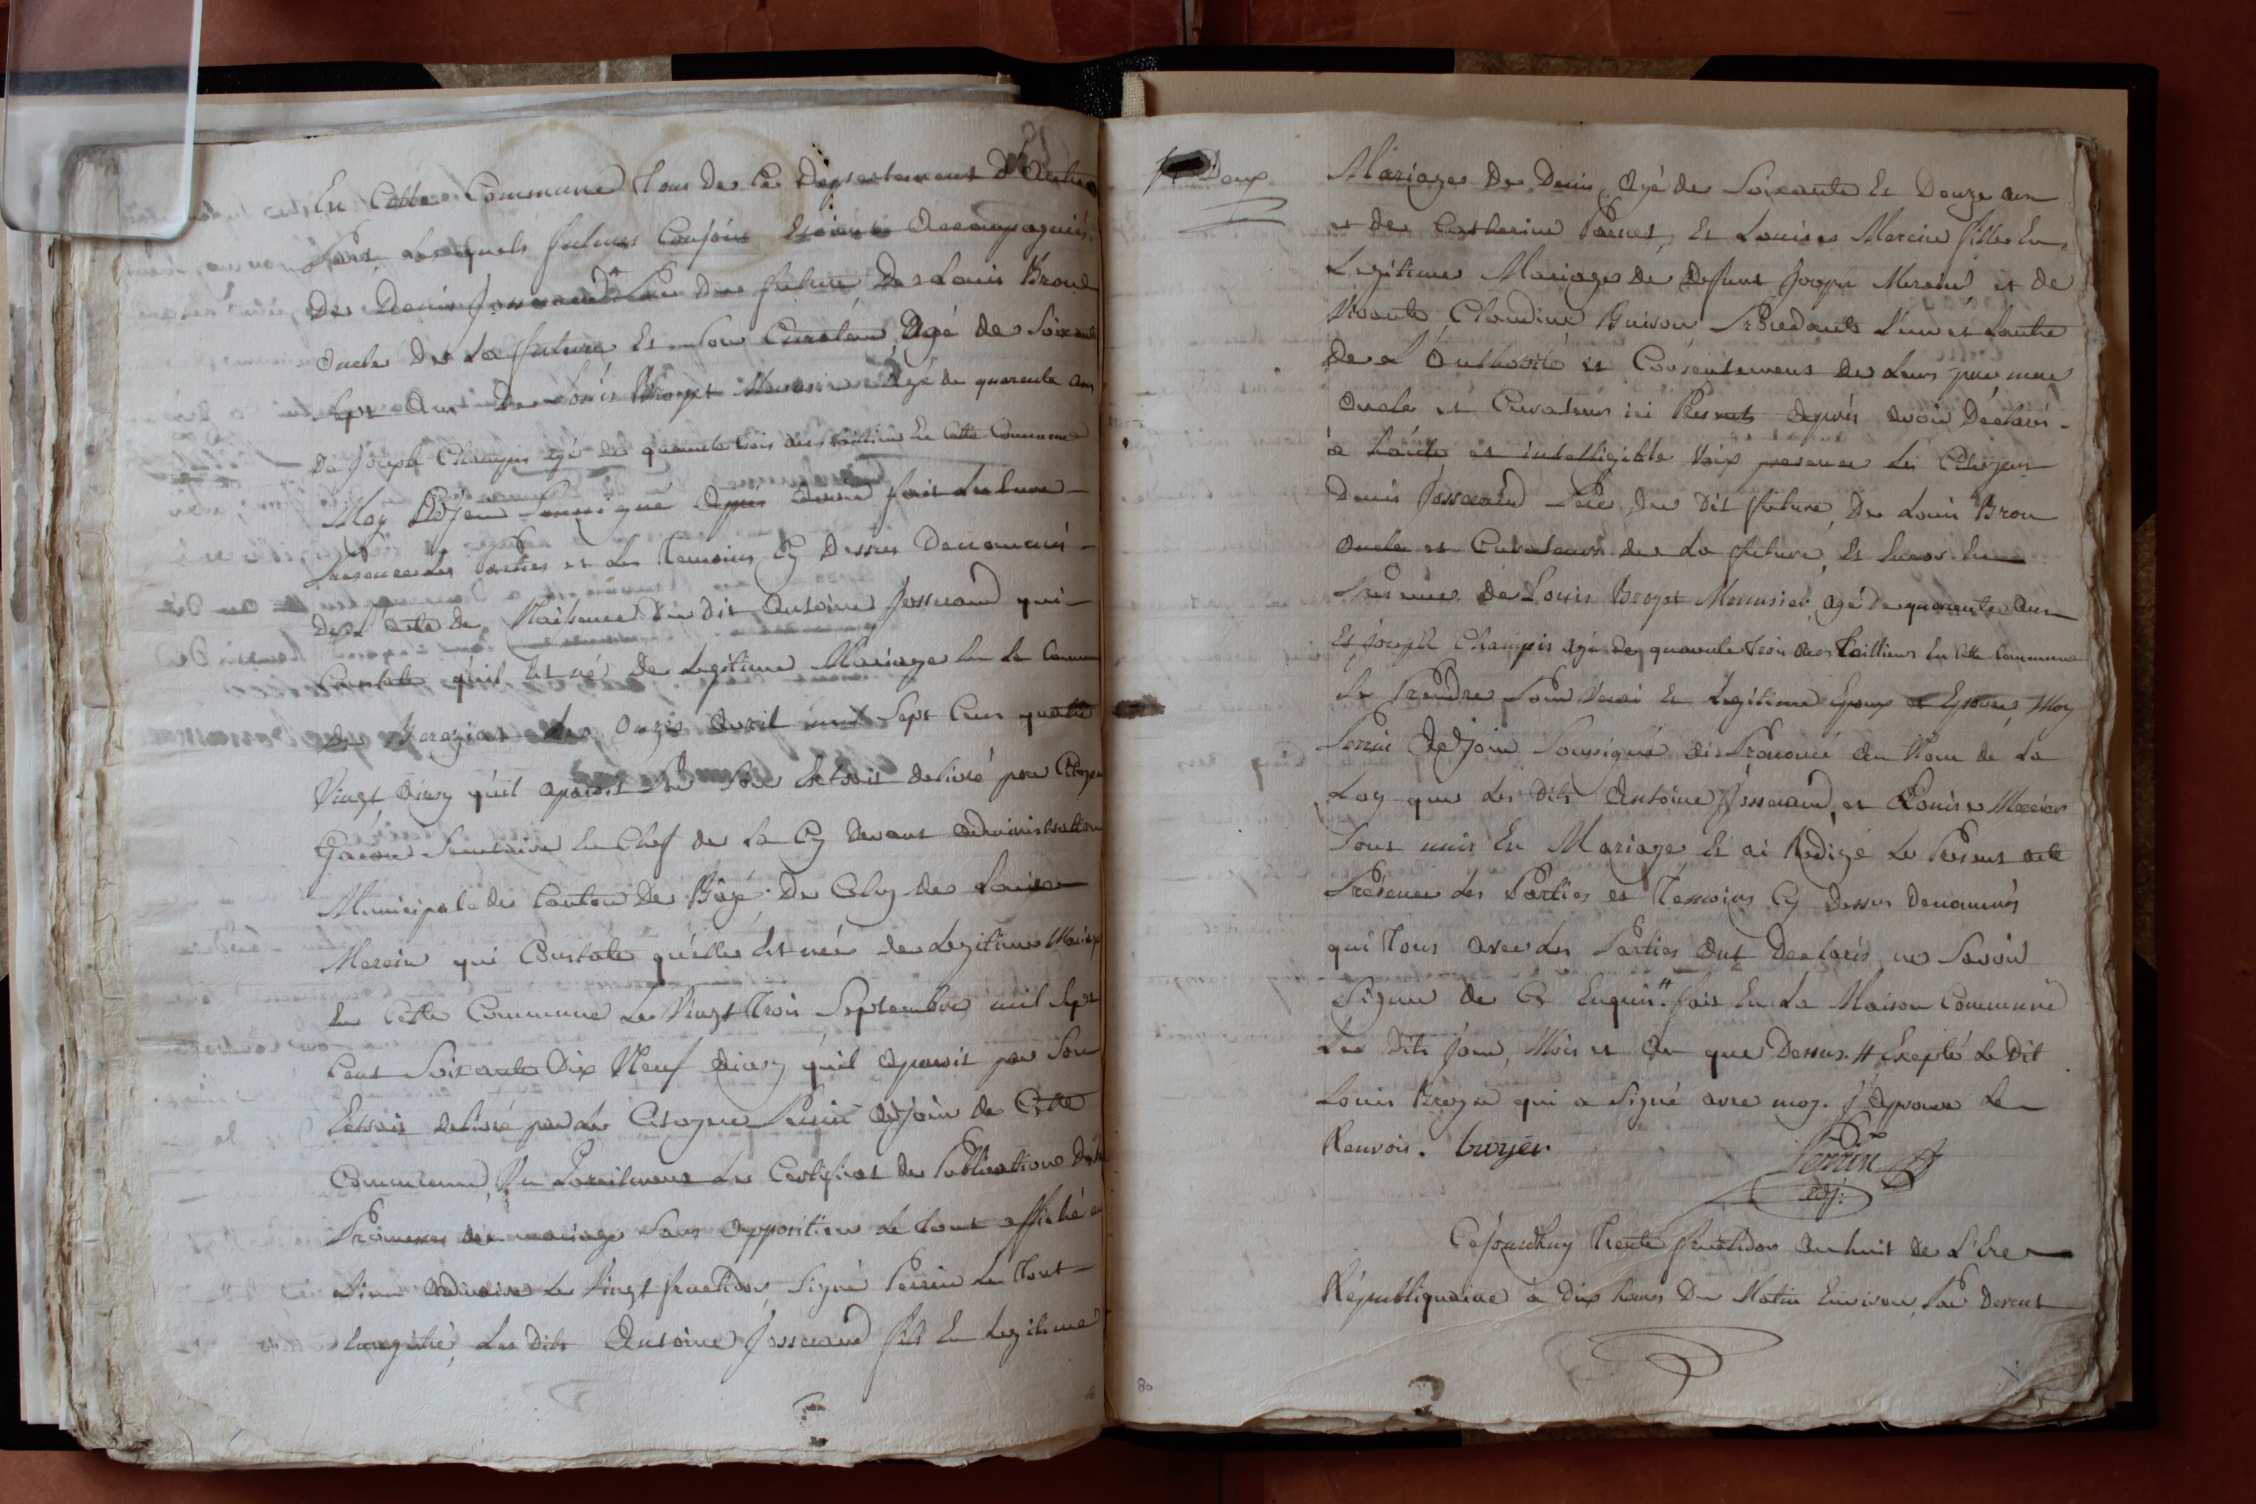 En Cette Commune tous de Ce Departement D'autre
Part Lesquels futurs Conjoin Etoient Accompagniés
De Denis Josserand Pere du futur De Louis Broud
oncle De La future Et son Curateur Agé de Soixante
Sept Ans De Louis Broyer Menusier Agé de quarente ans
De Joseph Champin agé de quarente trois ans taillieur En Cette Commune
Moy Adjoin Soussigné Apres Avoir fait Lecture
Presence des Parties et des Temoins Cy Dessus Denommés
De L'acte de Naissance du dit Antoine Josserand qui
Constate qu'il Est né de Legitime Mariage En la Commune
de Le Onze Avril mil Sept Cens quatre
Vingt Ainsy qu'il aparoit Par Son Extrait delivré par Citoyen
Secretaire En Chef de La Cy devant administration
Municipale du Canton De Bâgé De Celuy de Louise
Mercier qui Constate qu'elle Est née de Legitime Mariage
En Cette Commune Le Vingt Trois Septembre mil Sept
Cent Soixante Dix Neuf Ainsy qu'il aparoit par Son
Extrait delivré par Le Citoyen Perrin Adjoin de Cette
Commune, Vu Pareilement Les Certificat de Publication De
Promesses de mariage Sans Opposition Le tout affiché au
Lieu Ordinaire Le Vingt fructidor, Signé Perrin Le Tout
Enregistré, Les Dits Antoine Josserand fils En Legitime
Deux
Mariage De Denis Agé de Soixante Et Douze ans
et de Catherine Et Louise Mercier fille En
Legitime Mariage de Defunt Joseph Mercier et de
Vivante Claudine Buison Procedants L'un et L'autre
De L'Authorité et Consentement de Leurs pere mere
Oncle et Curateur ici Presents Apres avoir Declaré
à haute et intelligible Voix presence des Citoyens
Denis Josserand Pere du Dit future, De Louis Brou
Oncle et Curateur de La future, Et Encor En
Presence De Louis Broyer Menusier, agé De quarente Ans
Et Joseph Champin agé de quarente Trois Ans Taillieur En Cette Commune
Se Prendre Pour Vrai Et Legitime Epoux et Epouse, Moy
Perrin Adjoin Soussigné ai Prononcé Au Nom de La
Loy que Les Dits Antoine Josserand, et Louise Mercier
Sont unis En Mariage Et ai Redigé Le Present acte
Presence des Parties et Temoins Cy Dessus Denommés
qui Tous avec Les Parties Ont Declarés ne Savoir
Signer de Ce Enquis # fait En La Maison Commune
Les Dits Jour, Mois et An que Dessus. # Excepté Le Dit
Louis Broyer qui a Signé avec moy. J'Aprouve Le
Renvois. broyer
Perrin
adj:
Cejourdhuy Trente fructidor An huit de L'Ere
Républiquaine à Dix heures Du Matin Environ, Par Devant
80